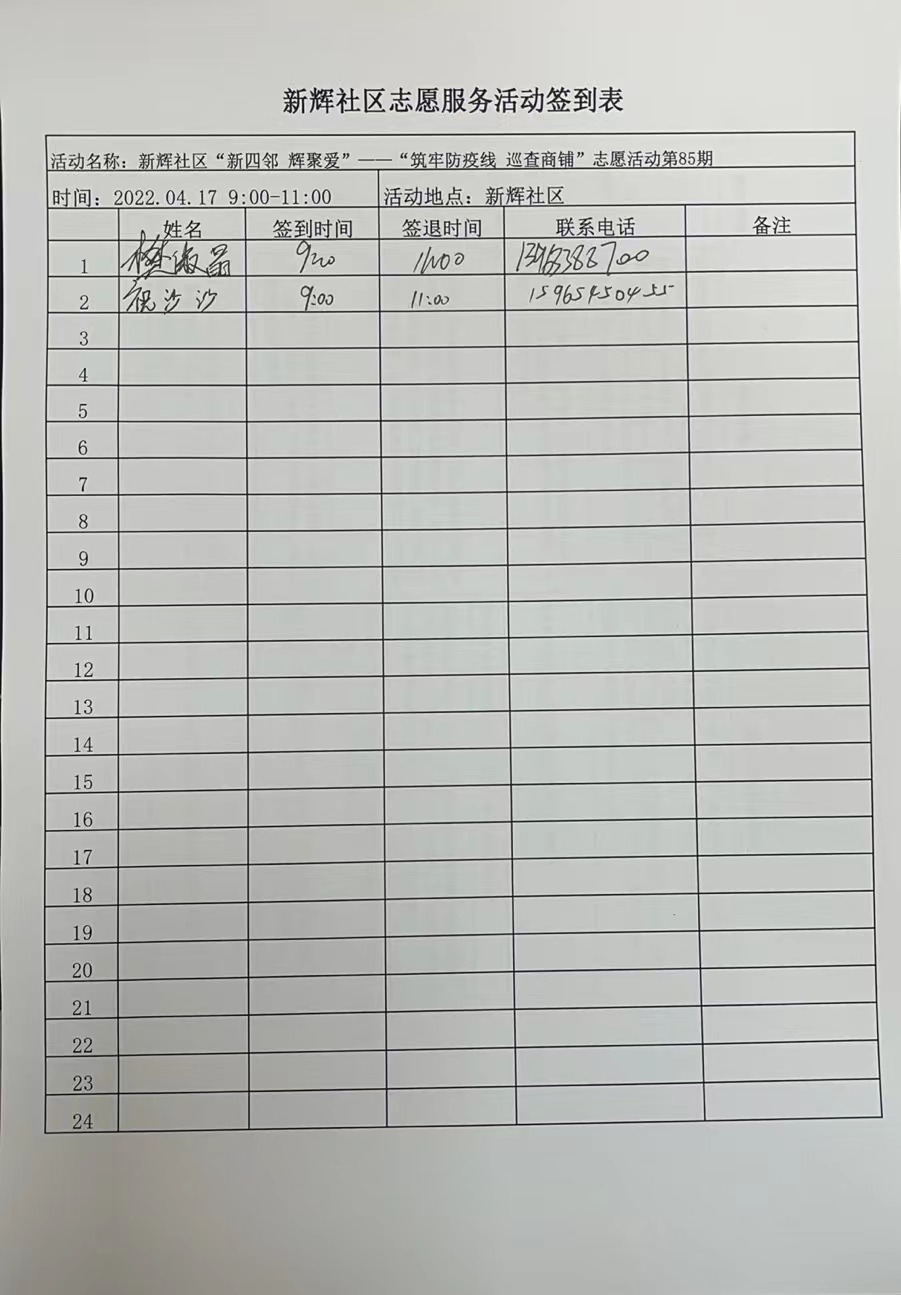 新辉社区志愿服务活动签到表
活动名称：新辉社区“新四邻 辉聚爱”——“筑牢防疫线 巡查商铺”志愿活动第85期
时间：2022.04.17 9:00-11:00 活动地点：新辉社区
姓名 签到时间 签退时间 联系电话 备注
1 9:00 11:00
2 祝沙沙 9:00 11:00
3
4
5
6
7
8
9
10
11
12
13
14
15
16
17
18
19
20
21
22
23
24